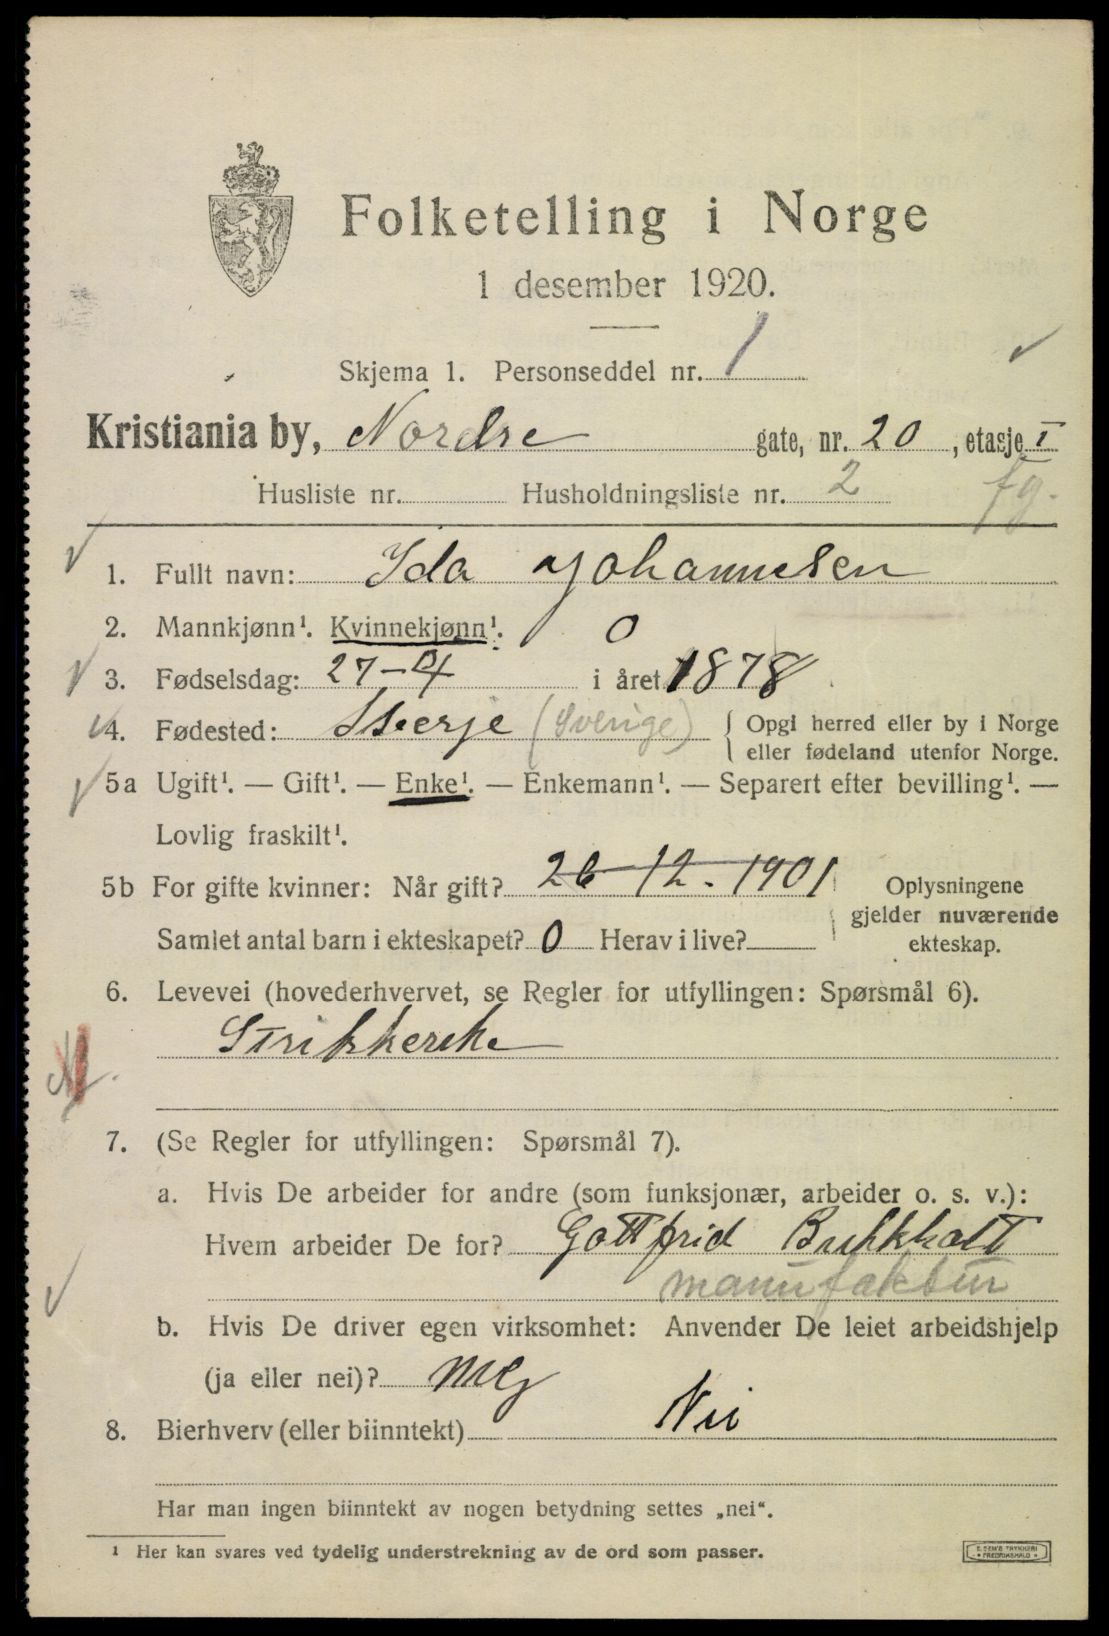 Folketelling i Norge
1 desember 1920.
Skjema 1. Personseddel nr. 1
Kristiania by, Nordre gate, nr. 20, etasje I
Husliste nr. Husholdningsliste nr. 2 fg.
1. Fullt navn: Ida Johannesen
2. Mannkjønn¹. Kvinnekjønn¹. 0
3. Fødselsdag: 27-4 i året 1878
4. Fødested: (Sverige) { Opgi herred eller by i Norge
eller fødeland utenfor Norge.
5a Ugift¹. — Gift¹. — Enke¹. — Enkemann¹. — Separert efter bevilling¹. —
Lovlig fraskilt¹.
5b For gifte kvinner: Når gift? 26-12-1901 Oplysningene
gjelder nuværende
Samlet antal barn i ekteskapet? 0 Herav i live? ekteskap.
6. Levevei (hovederhvervet, se Regler for utfyllingen: Spørsmål 6).
Strikkerske
7. (Se Regler for utfyllingen: Spørsmål 7).
a. Hvis De arbeider for andre (som funksjonær, arbeider o. s. v.):
Hvem arbeider De for? Gottfrid
manufaktur
b. Hvis De driver egen virksomhet: Anvender De leiet arbeidshjelp
(ja eller nei)? nej
8. Bierhverv (eller biinntekt) Nei
Har man ingen biinntekt av nogen betydning settes „nei“.
¹ Her kan svares ved tydelig understrekning av de ord som passer.
E. SEM'S TRYKKERI
FREDRIKSHALD